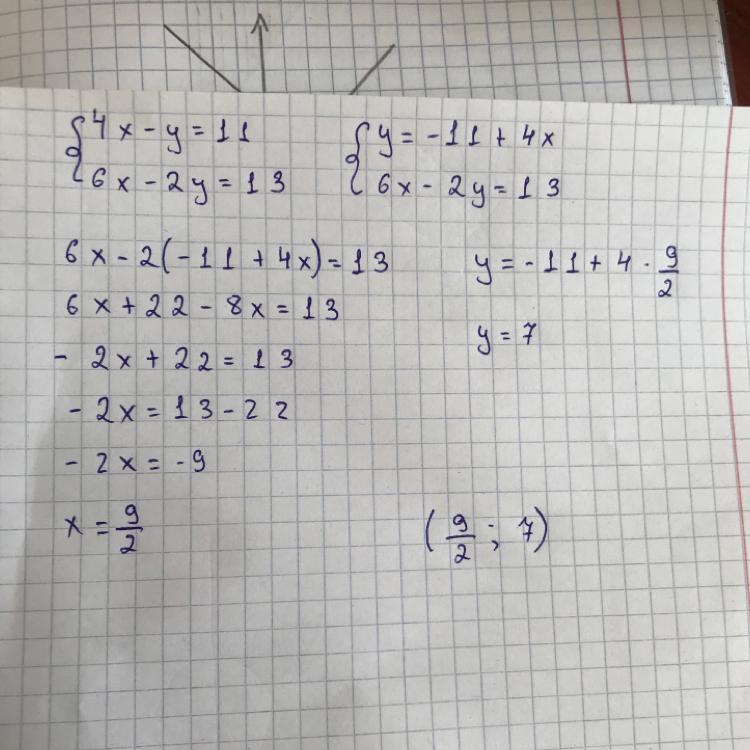 {4x - y = 11
{6x - 2y = 13
{y = -11 + 4x
{6x - 2y = 13
6x - 2(-11 + 4x) = 13
6x + 22 - 8x = 13
- 2x + 22 = 13
- 2x = 13 - 22
- 2x = -9
x = 9/2
y = -11 + 4 · 9/2
y = 7
(9/2 ; 7)